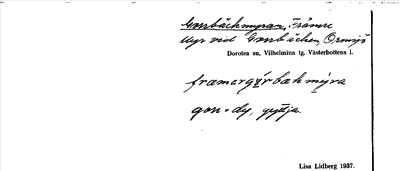 Gorrbäckmyran, Främre
Myr vid Gorrbäcken, Ormsjö
Dorotea sn, Vilhelmina tg, Västerbottens l.
framargórbäkmýra
gorr = dy, gyttja.
Lisa Lidberg 1937.